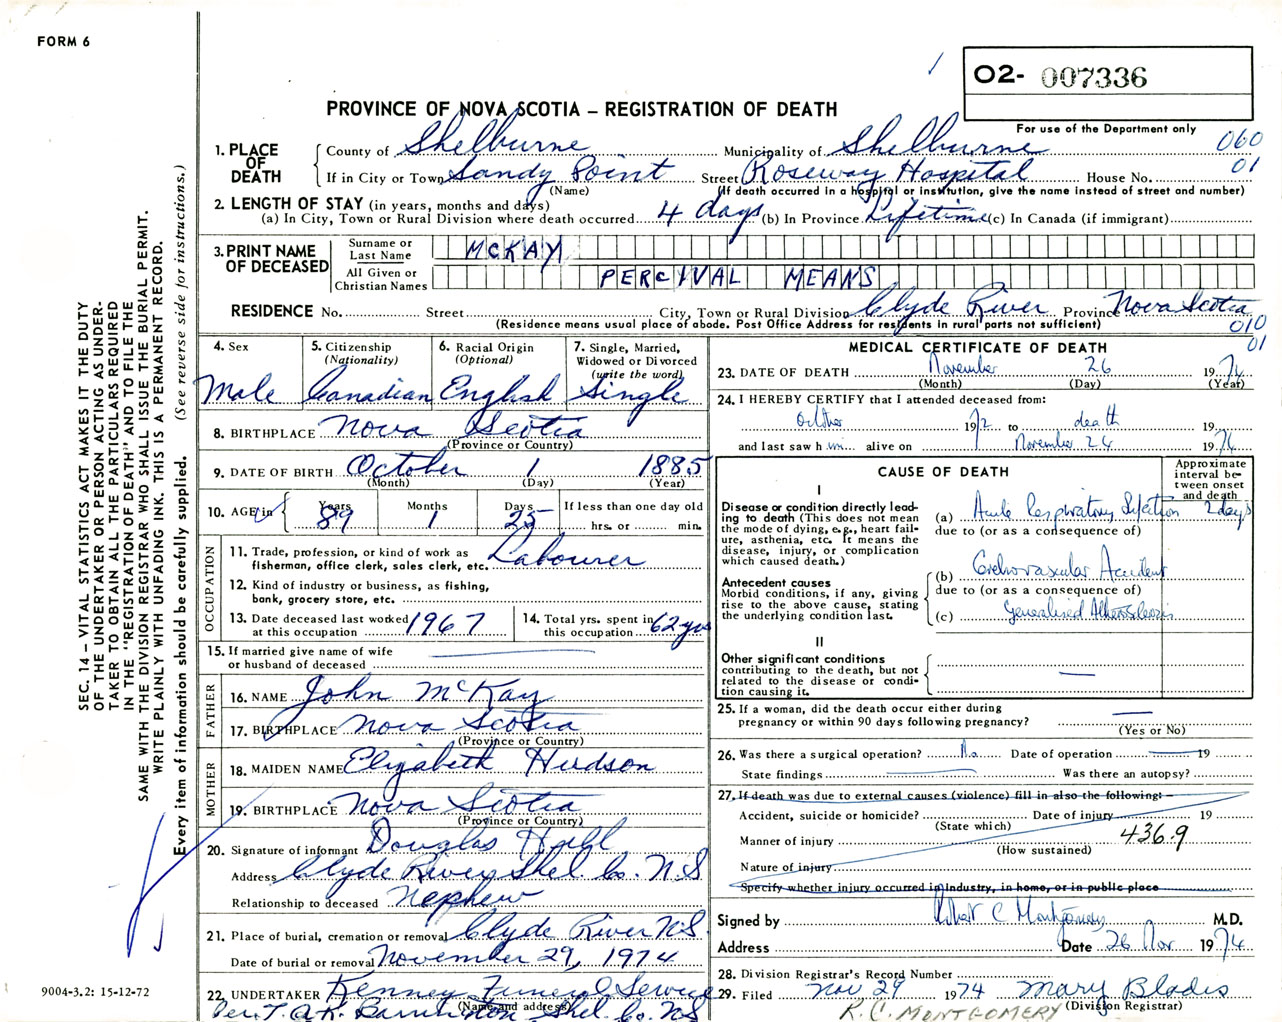 FORM 6
O2- 007336
PROVINCE OF NOVA SCOTIA – REGISTRATION OF DEATH
For use of the Department only
060
01
1. PLACE OF DEATH
County of Shelburne Municipality of Shelburne
If in City or Town Sandy Point Street Roseway Hospital House No.
(Name) (If death occurred in a hospital or institution, give the name instead of street and number)
2. LENGTH OF STAY (in years, months and days)
(a) In City, Town or Rural Division where death occurred 4 days (b) In Province Lifetime (c) In Canada (if immigrant)
3. PRINT NAME OF DECEASED
Surname or Last Name McKAY
All Given or Christian Names PERCIVAL MEANS
RESIDENCE No. Street City, Town or Rural Division Clyde River Province Nova Scotia
(Residence means usual place of abode. Post Office Address for residents in rural parts not sufficient)
010
01
4. Sex
Male
5. Citizenship
(Nationality)
Canadian
6. Racial Origin
(Optional)
English
7. Single, Married,
Widowed or Divorced
(write the word)
Single
8. BIRTHPLACE Nova Scotia
(Province or Country)
9. DATE OF BIRTH October 1 1885
(Month) (Day) (Year)
10. AGE in
Years Months Days If less than one day old
89 1 25 hrs. or min.
OCCUPATION
11. Trade, profession, or kind of work as
fisherman, office clerk, sales clerk, etc. Labourer
12. Kind of industry or business, as fishing,
bank, grocery store, etc.
13. Date deceased last worked
at this occupation 1967
14. Total yrs. spent in
this occupation 62 yrs
15. If married give name of wife
or husband of deceased
FATHER
16. NAME John McKay
17. BIRTHPLACE Nova Scotia
(Province or Country)
MOTHER
18. MAIDEN NAME Elizabeth Hudson
19. BIRTHPLACE Nova Scotia
(Province or Country)
20. Signature of informant Douglas
Address Clyde River Shel. Co. N.S
Relationship to deceased Nephew
21. Place of burial, cremation or removal Clyde River N.S.
Date of burial or removal November 29, 1974
22. UNDERTAKER Kenney Funeral Service
(Name and address)
Per. T. A. K. Barrington Shel. Co. N.S
MEDICAL CERTIFICATE OF DEATH
23. DATE OF DEATH November 26 1974
(Month) (Day) (Year)
24. I HEREBY CERTIFY that I attended deceased from:
October 1972 to death 19
and last saw h im alive on November 26 1974
CAUSE OF DEATH
Approximate
interval be-
tween onset
and death
I
Disease or condition directly lead-
ing to death (This does not mean
the mode of dying, e.g., heart fail-
ure, asthenia, etc. It means the
disease, injury, or complication
which caused death.)
(a) Acute Respiratory Infection 2 days
due to (or as a consequence of)
Antecedent causes
Morbid conditions, if any, giving
rise to the above cause, stating
the underlying condition last.
(b) Cerebrovascular Accident
due to (or as a consequence of)
(c) Generalised
II
Other significant conditions
contributing to the death, but not
related to the disease or condi-
tion causing it.
25. If a woman, did the death occur either during
pregnancy or within 90 days following pregnancy?
(Yes or No)
26. Was there a surgical operation? No. Date of operation 19
State findings Was there an autopsy?
27. If death was due to external causes (violence) fill in also the following: –
Accident, suicide or homicide? Date of injury 19
(State which)
Manner of injury 436.9
(How sustained)
Nature of injury
Specify whether injury occurred in industry, in home, or in public place
Signed by Robert C Montgomery M.D.
Address Date 26 Nov 1974
28. Division Registrar's Record Number
29. Filed Nov 29 1974 Mary Blades
(Division Registrar)
R. C. MONTGOMERY
SEC. 14 – VITAL STATISTICS ACT MAKES IT THE DUTY
OF THE UNDERTAKER OR PERSON ACTING AS UNDER-
TAKER TO OBTAIN ALL THE PARTICULARS REQUIRED
IN THE "REGISTRATION OF DEATH" AND TO FILE THE
SAME WITH THE DIVISION REGISTRAR WHO SHALL ISSUE THE BURIAL PERMIT.
WRITE PLAINLY WITH UNFADING INK. THIS IS A PERMANENT RECORD.
Every item of information should be carefully supplied. (See reverse side for instructions.)
9004-3.2: 15-12-72